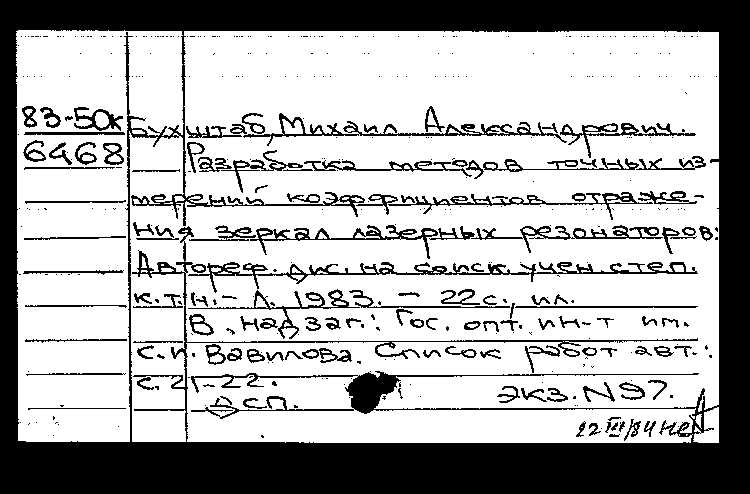 83-50к Бухштаб, Михаил Александрович.
6468 Разработка методов точных из-
мерений коэффициентов отраже-
ния зеркал лазерных резонаторов:
Автореф. дис. на соиск. учен. степ.
к.т.н. - Л., 1983. - 22 с., ил.
В надзаг.: Гос. опт. ин-т им.
С.И. Вавилова. Список работ авт.:
с. 21-22.
ДСП. экз. N 97.
22 III/84